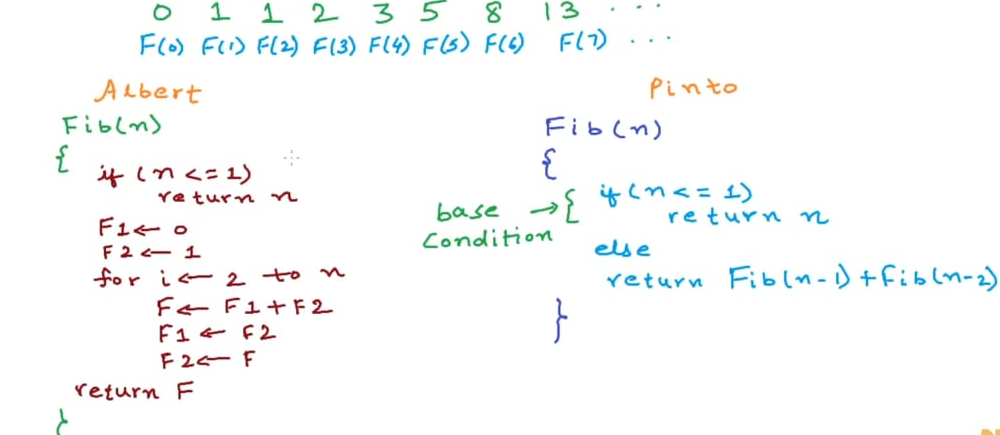 0 1 1 2 3 5 8 13 ...
F(0) F(1) F(2) F(3) F(4) F(5) F(6) F(7) ...
Albert
Fib(n)
{
if (n <= 1)
return n
F1 ← 0
F2 ← 1
for i ← 2 to n
F ← F1 + F2
F1 ← F2
F2 ← F
return F
}
Pinto
Fib(n)
{
base
condition
→ {
if (n <= 1)
return n
else
return Fib(n-1) + fib(n-2)
}